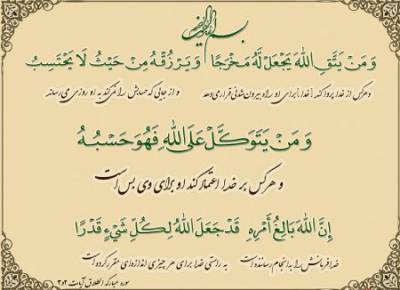 بسم الله الرحمن الرحیم
وَ مَنْ يَتَّقِ اللهَ يَجْعَلْ لَهُ مَخْرَجًا وَ يَرْزُقْهُ مِنْ حَيْثُ لَا يَحْتَسِبُ
و هرکس از خدا پروا کند [خدا] برای او راه بیرون شدنی قرار می‌دهد و از جایی که حسابش را نمی‌کند به او روزی می‌رساند
وَ مَنْ يَتَوَكَّلْ عَلَى اللهِ فَهُوَ حَسْبُهُ
و هرکس بر خدا اعتماد کند او برای وی بس است
إِنَّ اللهَ بَالِغُ أَمْرِهِ قَدْ جَعَلَ اللهُ لِكُلِّ شَيْءٍ قَدْرًا
خدا فرمانش را به انجام رساننده است به راستی خدا برای هر چیزی اندازه‌ای مقرر کرده است
سوره مبارکه الطلاق آیات ۲و۳